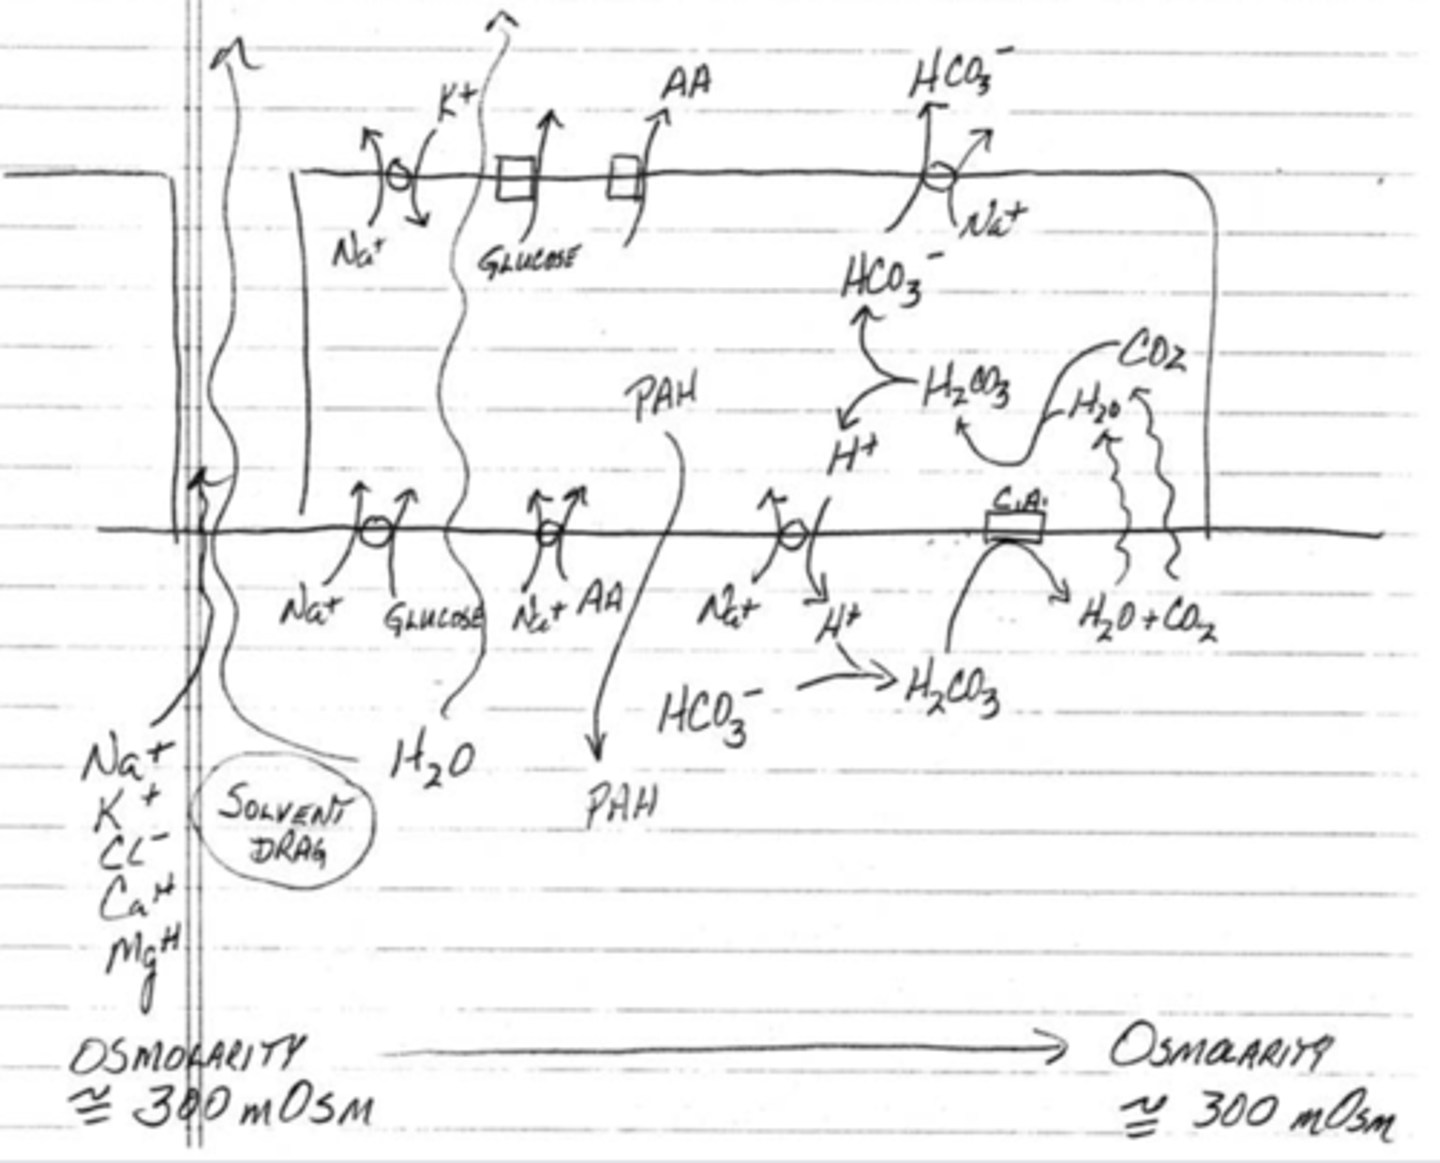 K+
AA
HCO3⁻
Na+
GLUCOSE
Na+
HCO3⁻
CO2
PAH
H2CO3
H2O
H+
C.A.
Na+
GLUCOSE
Na+
AA
Na+
H+
H2O + CO2
HCO3⁻
H2CO3
Na+
H2O
K+
SOLVENT
DRAG
PAH
CL⁻
Ca++
Mg++
OSMOLARITY
≅ 300 mOsm
OSMOLARITY
≅ 300 mOsm